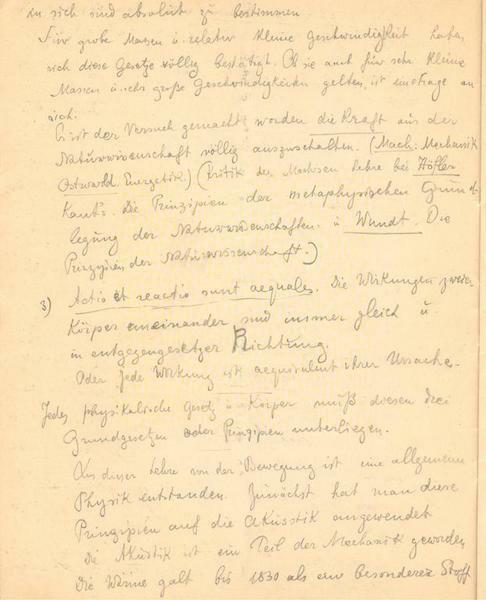 an sich sind absolut zu bestimmen
Für grobe Massen u. relativ kleine Geschwindigkeit haben
sich diese Gesetze völlig bestätigt. Ob sie auch für sehr kleine
Massen u. sehr große Geschwindigkeiten gelten, ist eine Frage an
sich.
Es ist der Versuch gemacht worden die Kraft aus der
Naturwissenschaft völlig auszuschalten. (Mach: Mechanik
Ostwald. Energetik.) (Kritik des Machschen Lehre bei Höfler
Kants. Die Prinzipien der metaphysischen Grund
legung der Naturwissenschaften. u Wundt. Die
Prinzipien der Naturwissenschaft.)
3) Actio et reactio sunt aequales. Die Wirkungen zweier
Körper aneinander sind immer gleich u
in entgegengesetzer Richtung.
Oder Jede Wirkung ist aequivalent ihrer Ursache.
Jedes physikalische Gesetz u Körper muß diesen drei
Grundgesetzen oder Prinzipien unterliegen.
Aus dieser Lehre von der Bewegung ist eine allgemeine
Physik entstanden. Zunächst hat man diese
Prinzipien auf die Akusstik angewendet
Die Akustik ist ein Teil der Mechanik geworden
Die Wärme galt bis 1830 als ein besonderer Stoff